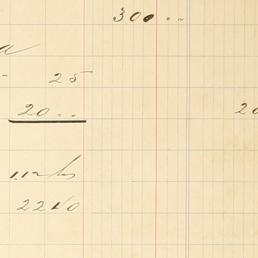 300 ..
a
- 25
20 .. 20
2210